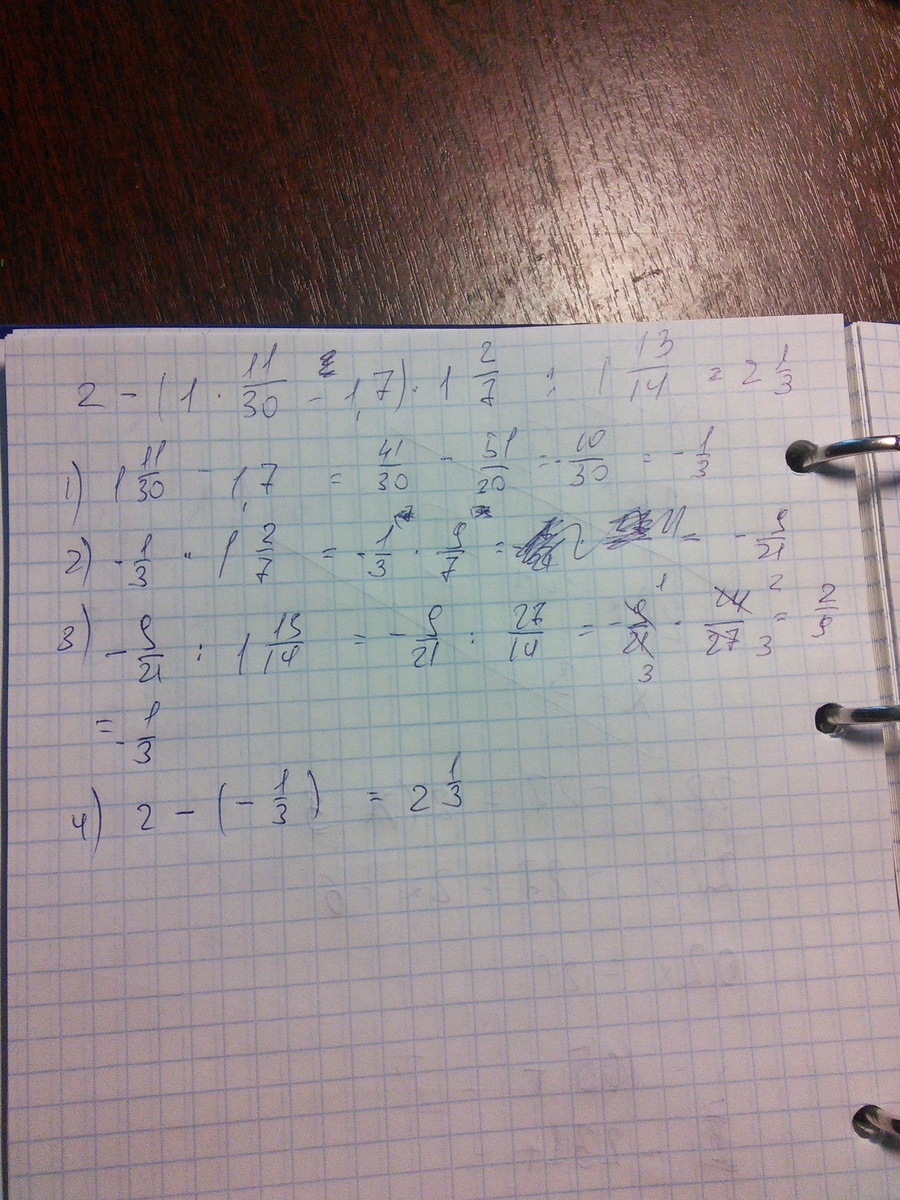 2 - (1 · 11/30 - 1,7) · 1 2/7 : 1 13/14 = 2 1/3
1) 1 11/30 - 1,7 = 41/30 - 51/30 = - 10/30 = - 1/3
2) - 1/3 · 1 2/7 = - 1/3 · 9/7 = = - 9/21
3) - 9/21 : 1 13/14 = - 9/21 : 27/14 = - 9/21 1 3 · 14/27 2 3 = 2/9
= - 1/3
4) 2 - (- 1/3) = 2 1/3